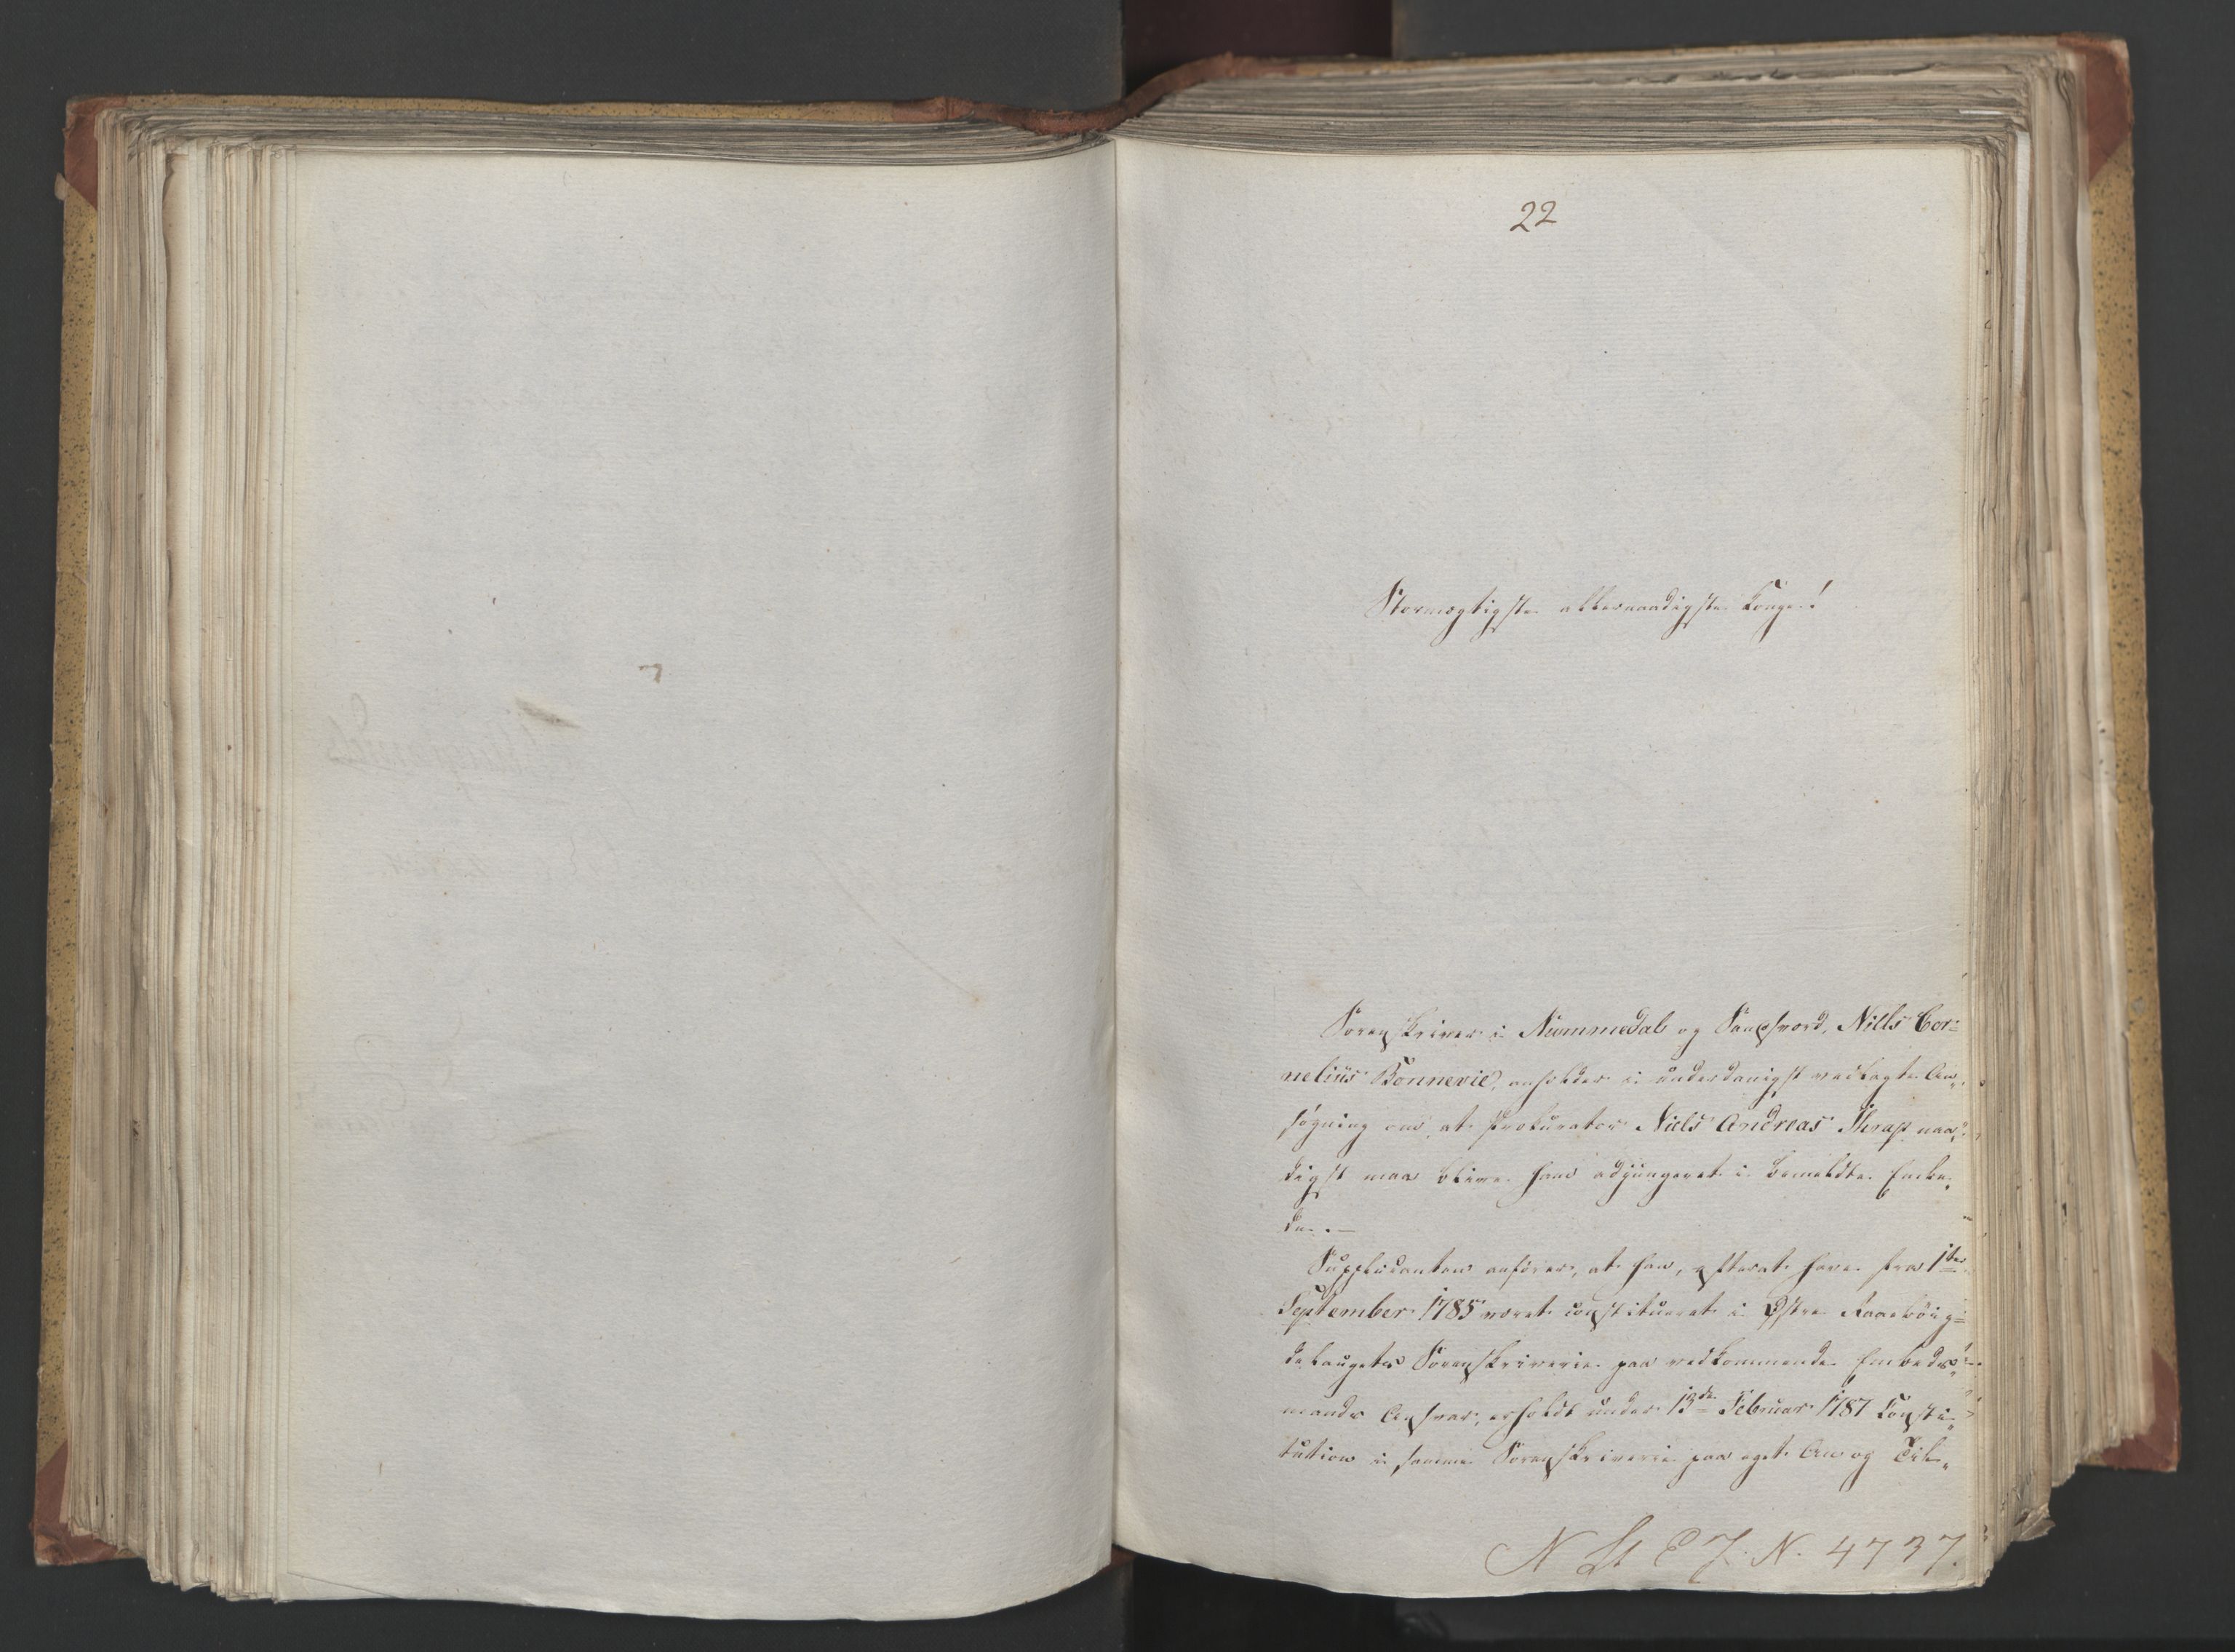 22
Stormægtigste allernaadigste Konge!
Sorenskriver i Nummedal og Sandsværd, Niels Cor=
nelius Bonnevie, anholder i underdanigst vedlagte An„
søgning om, at Prokurator Niels Andreas Thrap naa„
digst maa blive ham adjungeret i bemeldte Embe„
de. —
Supplicanten anfører, at han, efterat have fra 1ste
September 1785 været constitueret i Østre Raabøig=
delaugets Sorenskriverie paa vedkommende Embeds„
mands Ansvar, erholdt under 13de Februar 1787 Consti„
tution i samme Sorenskriverie paa eget An og Til„
N St E J. N. 4737.